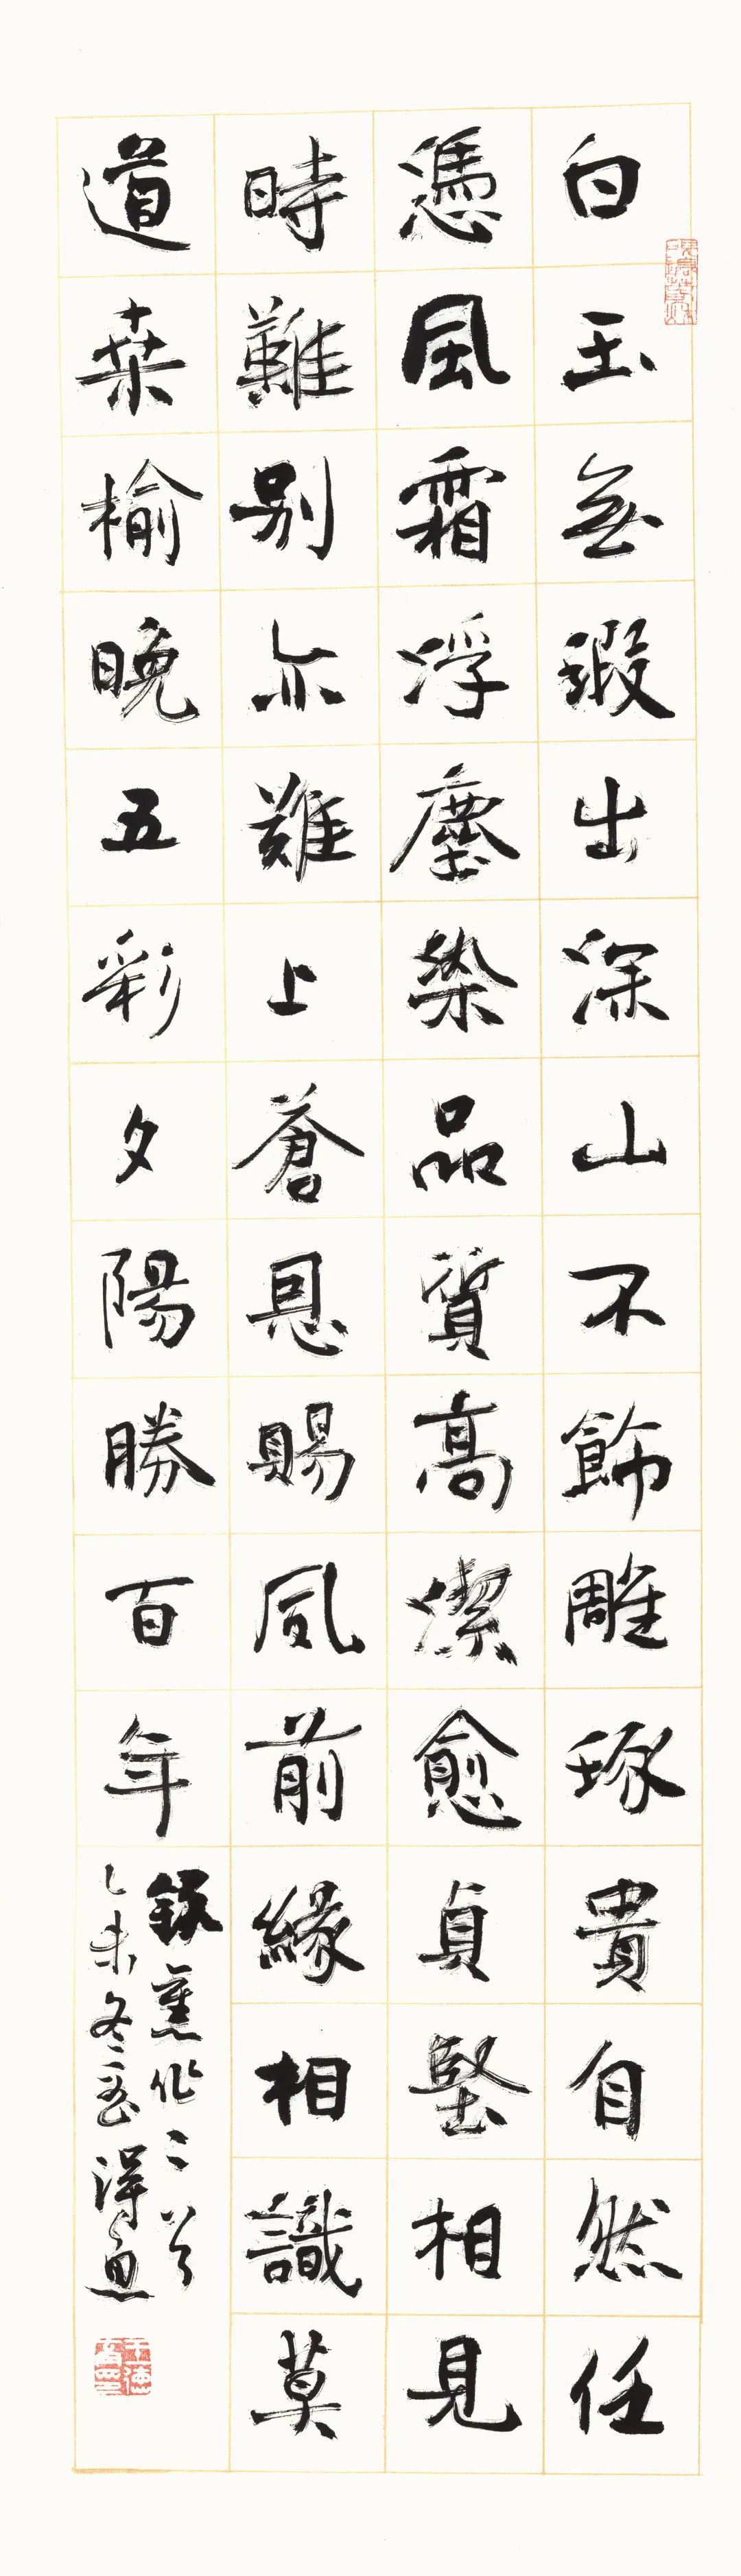 白玉無瑕出深山不飾雕琢貴自然任
憑風霜浮塵染品質高潔愈貞堅相見
時難別亦難上蒼恩賜夙前緣相識莫
道桑榆晚五彩夕陽勝百年
錄舊作二首
乙未冬月